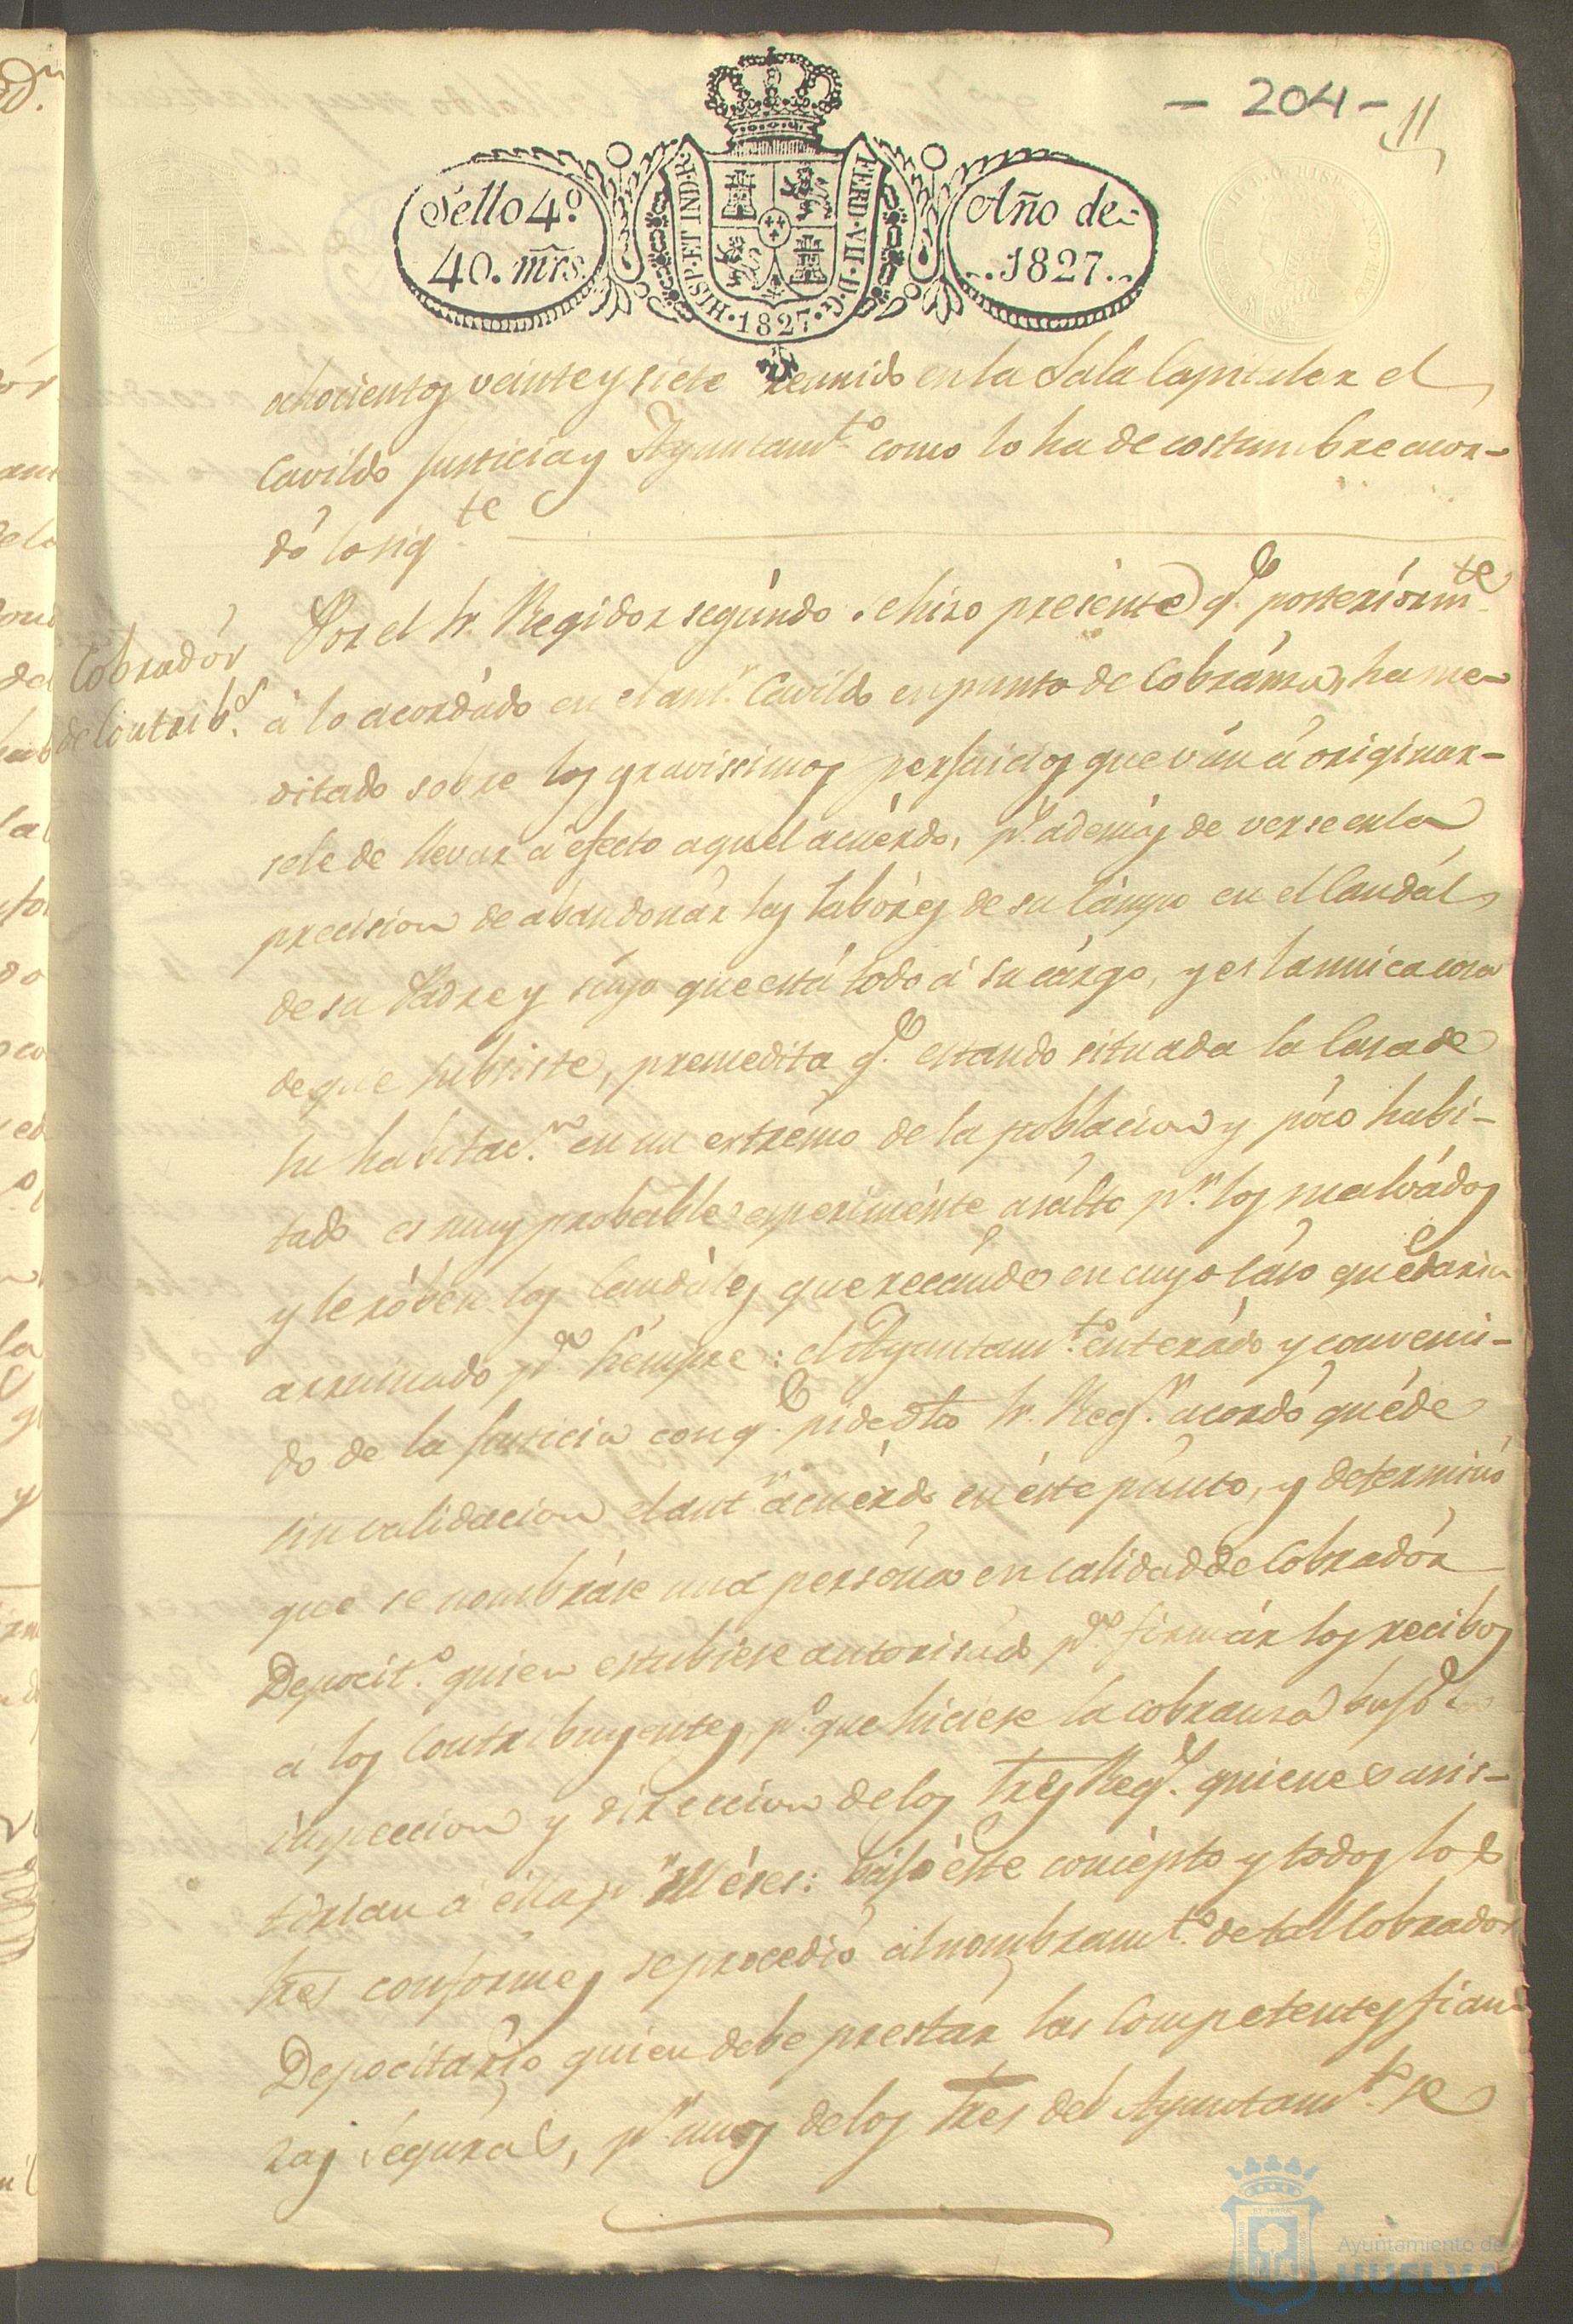 - 204 -
11
Sello 4.º
40. mrs.
HISP. ET IND. R.
FERD. VII. D. G.
· 1827 ·
Año de
1827.
ochocientos veinte y siete reunido en la Sala Capitular el
Cavildo Justicia y Ayuntam.to como lo ha de costumbre acor-
dó lo sig.te
Cobradór
de Contrib.s
Por el Sr. Regidor segúndo se hizo presénte q.e posteriórm.te
á lo acordádo en el ant.r Cavildo en punto de Cobránza, ha me
ditado sobre los gravissimos perjuicios que ván á originar-
sele de llevar á éfecto aquel acuérdo, p.r además de verse en la
precision de abandonár las labóres de su Cámpo en el Caudál
de su Padre y súyo que está todo á su cárgo, y es la unica cosa
de que subsiste, premedita q.e estando situada la Casa de
su habitac.n en un extrémo de la poblacion y póco habi-
tado es muy probable esperiménte asálto p.r los malvádos
y le róben los Caudáles que recáude en cuyo cáso quedaria
arruinado p.a siémpre: el Ayuntam.to enterádo y conveni-
do de la justicia con q.e pide dho Sr. Reg.r acordó quéde
sin validacion el ant.r acuérdo en éste púnto, y determinó
que se nombráse una persóna en calidad de Cobradór
Deposit.o quien estubiese autorisado p.a firmár los recibos
á los Contribuyentes, p.o que hiciese la cobranza bajo la
inspeccion y direccion de los tres Reg.s quienes asis-
tirian á élla p.r Méses: bájo éste concépto y todos los
Sres conformes se procedió al nombram.to de tal Cobrador
Depocitário quien debe prestár las Competentes fian
zas segúras, p.r unos de los Sres del Ayuntam.to se
Ayuntamiento de
HUELVA